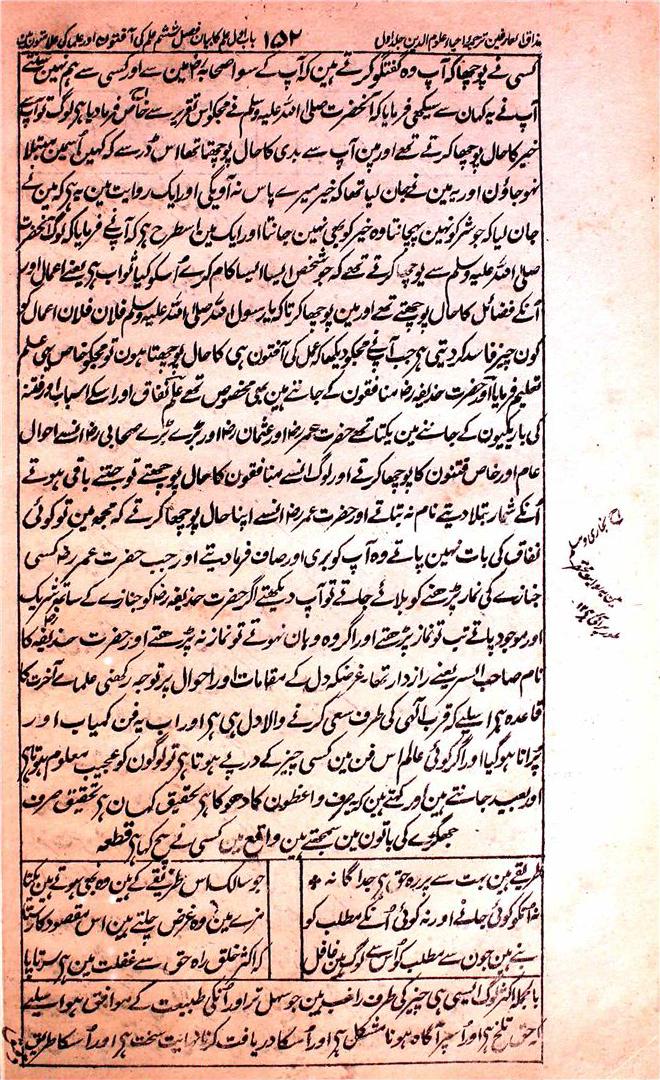 مذاق العارفین ترجمہ احیاء علوم الدین جلد اول ۱۵۲ باب اول علم کا بیان فصل ششم علم کی آفتوں اور علما کی علامتوں میں
کسی نے پوچھا کہ آپ وہ گفتگو کرتے ہین کہ آپ کے سوا صحابہ رضہ مین سے اور کسی سے ہم نہین سنتے
آپ نے یہ کہان سے سیکھی فرمایا کہ آنحضرت صلی اللہ علیہ وسلم نے مجکو اس تقریر سے خاص فرما دیا ہی لوگ تو آپسے
خیر کا حال پوچھا کرتے تھے اور مین آپ سے بدی کا حال پوچھتا تھا اس ڈر سے کہ کہین اسمین مبتلا
نہو جاؤن اور یہ مین نے جان لیا تھا کہ خیر میرے پاس نہ آویگی اور ایک روایت مین یہ ہی کہ مین نے
جان لیا کہ جو شر کو نہین پہچانتا وہ خیر کو بھی نہین جانتا اور ایک مین اسطرح ہی کہ آپنے فرمایا کہ لوگ آنحضرت
صلی اللہ علیہ وسلم سے پوچھا کرتے تھے کہ جو شخص ایسا ایسا کام کرے اُسکو کیا ثواب ہی یعنے اعمال اور
اُنکے فضائل کا حال پوچھتے تھے اور مین پوچھا کرتا کہ یا رسول اللہ صلی اللہ علیہ وسلم فلان فلان اعمال کو
کون چیز فاسد کر دیتی ہی جب آپنے مجکو دیکھا کہ عمل کی آفتون ہی کا حال پوچھتا ہون تو مجکو خاص یہی علم
تعلیم فرمایا اور حضرت حذیفہ رضہ منافقون کے جاننے مین بھی مخصوص تھے علم نفاق اور اسکے اسباب اور فتنہ
کی باریکیون کے جاننے مین یکتا تھے حضرت عمر رضہ اور عثمان رضہ اور بڑے بڑے صحابی رضہ انسے احوال
عام اور خاص فتنون کا پوچھا کرتے اور لوگ انسے منافقون کا حال پوچھتے تو جتنے باقی ہوتے
اُنکے شمار بتلا دیتے نام نہ بتاتے اور حضرت عمر رضہ انسے اپنا حال پوچھا کرتے کہ مجھ مین تو کوئی
نفاق کی بات نہین پاتے وہ آپ کو بری اور صاف فرما دیتے اور جب حضرت عمر رضہ کسی
جنازے کی نماز پڑھنے کو بلائے جاتے تو آپ دیکھتے اگر حضرت حذیفہ رضہ کو جنازے کے ساتھ شریک
اور موجود پاتے تب تو نماز پڑھتے اور اگر وہ وہان نہوتے تو نماز نہ پڑھتے اور حضرت حذیفہ رضہ کا
نام صاحب السر یعنے رازدار تھا غرضکہ دل کے مقامات اور احوال پر توجہ رکھنی علمائے آخرت کا
قاعدہ ہی اسلیے کہ قرب الٰہی کی طرف سعی کرنے والا دل ہی ہی اور اب یہ فن کمیاب اور
پرانا ہو گیا اور اگر کوئی عالم اس فن مین کسی چیز کے درپے ہوتا ہی تو لوگون کو عجیب معلوم ہوتا ہی
اور بعید جانتے ہین اور کہتے ہین کہ یہ صرف واعظون کا دھوکا ہی تحقیق کہان ہی تحقیق صرف
جھگڑے کی باتون مین سمجھتے ہین واقع مین کسی نے سچ کہا ہی قطعہ
طریقے ہین بہت سے پر رہ حق ہی جدا گانہ * جو سالک اس طریقے کے ہین وہ بھی ہوتے ہین یکتا
نہ اُنکو کوئی جانے اور نہ کوئی اُنکے مطلب کو مزے مین وہ غرض چلتے ہین اس مقصود کا رستا
بنے ہین جون سے مطلب کو اُس سے لوگ ہین غافل کہ اکثر خلق راہ حق سے غفلت مین ہی سرتاپا
بالجملہ اکثر لوگ ایسی ہی چیز کی طرف راغب ہین جو سہل تر اور اُنکی طبیعت کے موافق ہو اسلیے
کہ حق تلخ ہی اور اُسپر آگاہ ہونا مشکل ہی اور اُسکا دریافت کرنا نہایت سخت ہی اور اُسکا طریق
بخاری و مسلم